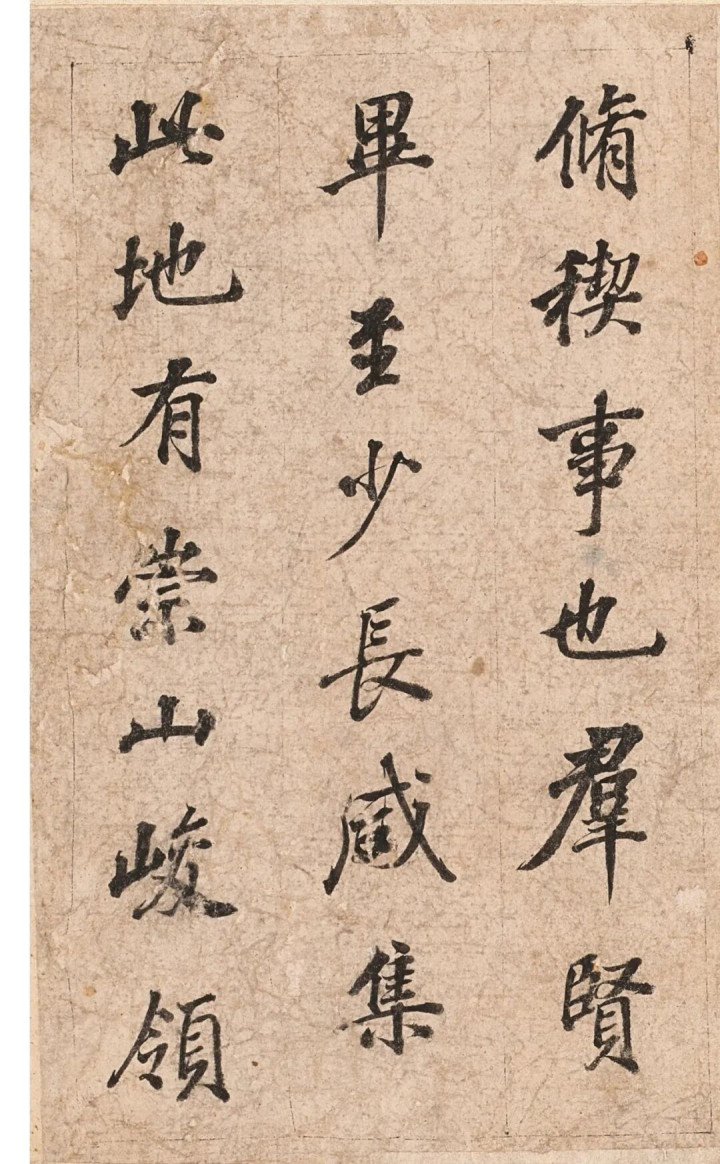 脩稧事也羣賢
畢至少長咸集
此地有崇山峻領